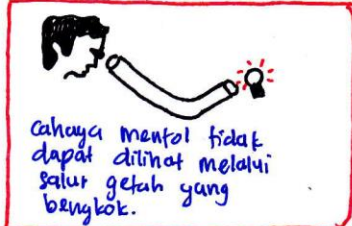 cahaya mentol tidak
dapat dilihat melalui
salur getah yang
bengkok.